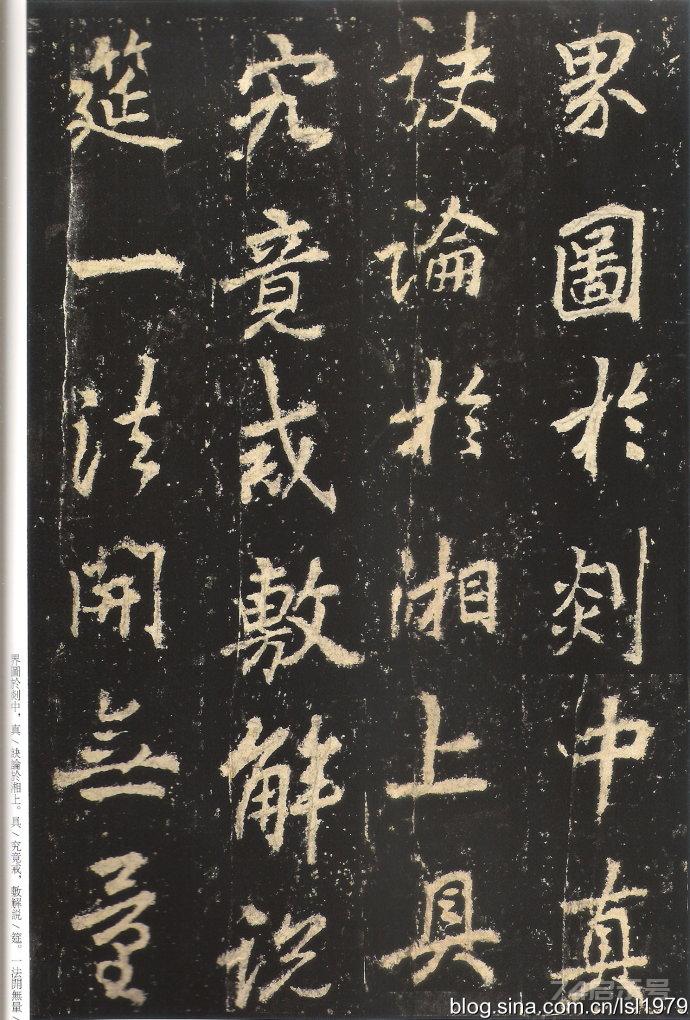 界圖於剡中真
訣論於湘上具
究竟戒敷解説
筵一法開無量
界圖於剡中，真/訣論於湘上。具/究竟戒，敷解説/筵。一法開無量/
blog.sina.com.cn/lsl1979